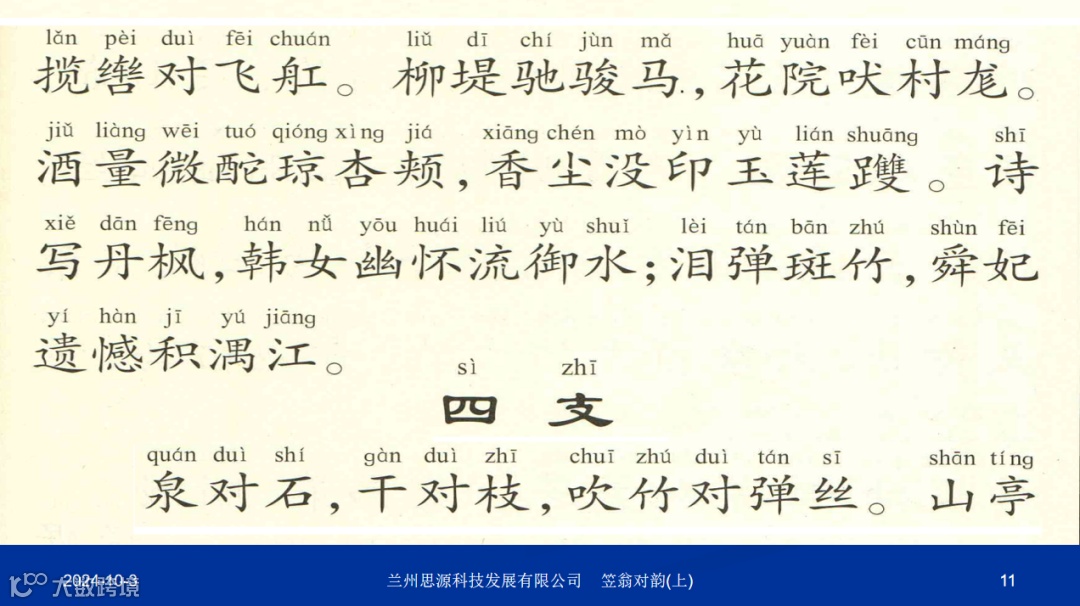 lǎn pèi duì fēi chuán liǔ dī chí jùn mǎ huā yuàn fèi cūn máng
揽辔对飞舡。柳堤驰骏马,花院吠村尨。
jiǔ liàng wēi tuó qióng xìng jiá xiāng chén mò yìn yù lián shuāng shī
酒量微酡琼杏颊,香尘没印玉莲躞。诗
xiě dān fēng hán nǚ yōu huái liú yù shuǐ lèi tán bān zhú shùn fēi
写丹枫,韩女幽怀流御水;泪弹斑竹,舜妃
yí hàn jī yú jiāng
遗憾积湡江。
sì zhī
四 支
quán duì shí gàn duì zhī chuī zhú duì tán sī shān tíng
泉对石,干对枝,吹竹对弹丝。山亭
2024-10-3 兰州思源科技发展有限公司 笠翁对韵(上) 11
大数跨境